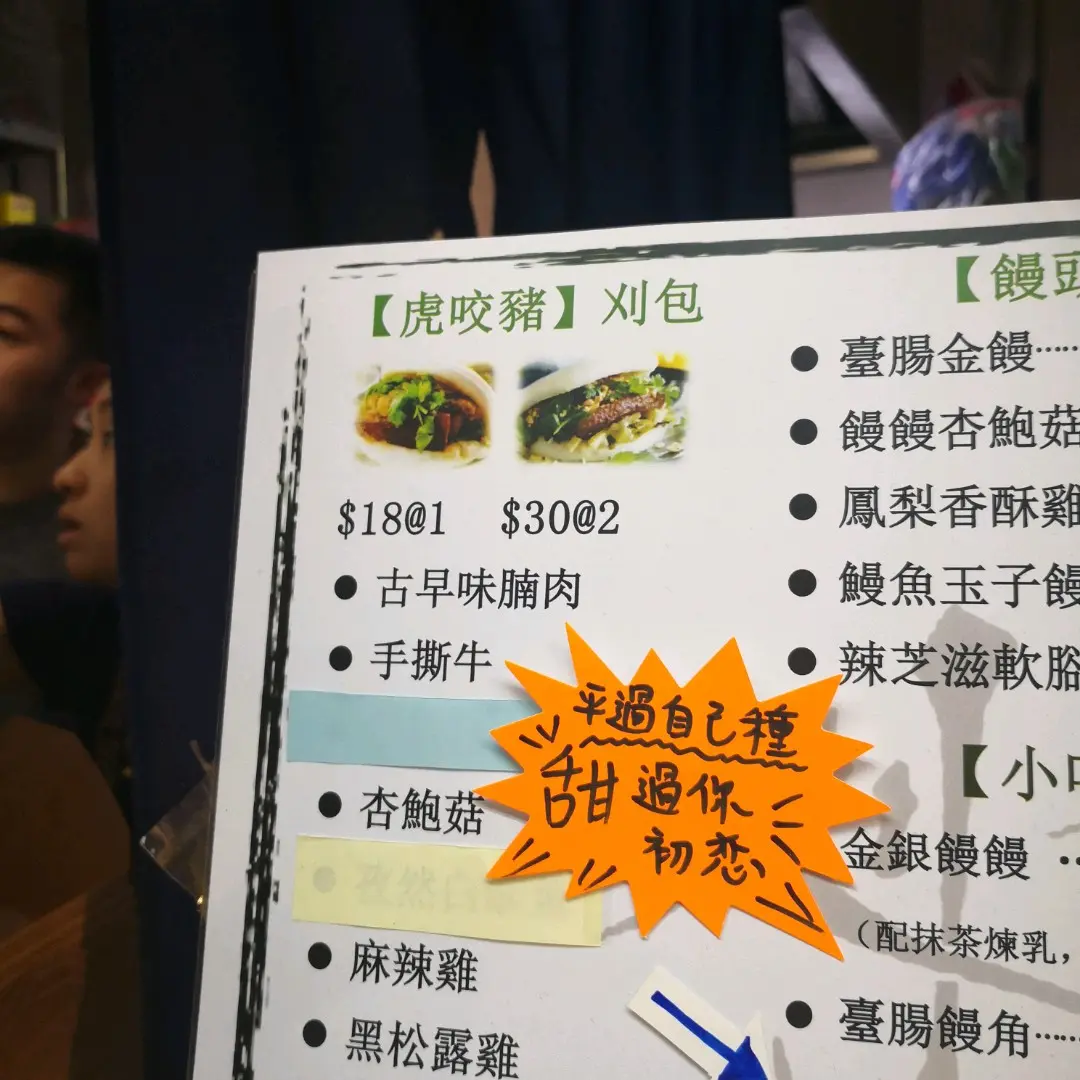 【虎咬豬】刈包
$18@1 $30@2
● 古早味腩肉
● 手撕牛
● 杏鮑菇
● 麻辣雞
● 黑松露雞
平過自己種
甜過你
初戀
【饅頭
● 臺腸金饅……
● 饅饅杏鮑菇
● 鳳梨香酥雞
● 鰻魚玉子饅
● 辣芝滋軟
【小
金銀饅饅 ..
（配抹茶煉乳，
● 臺腸饅角……